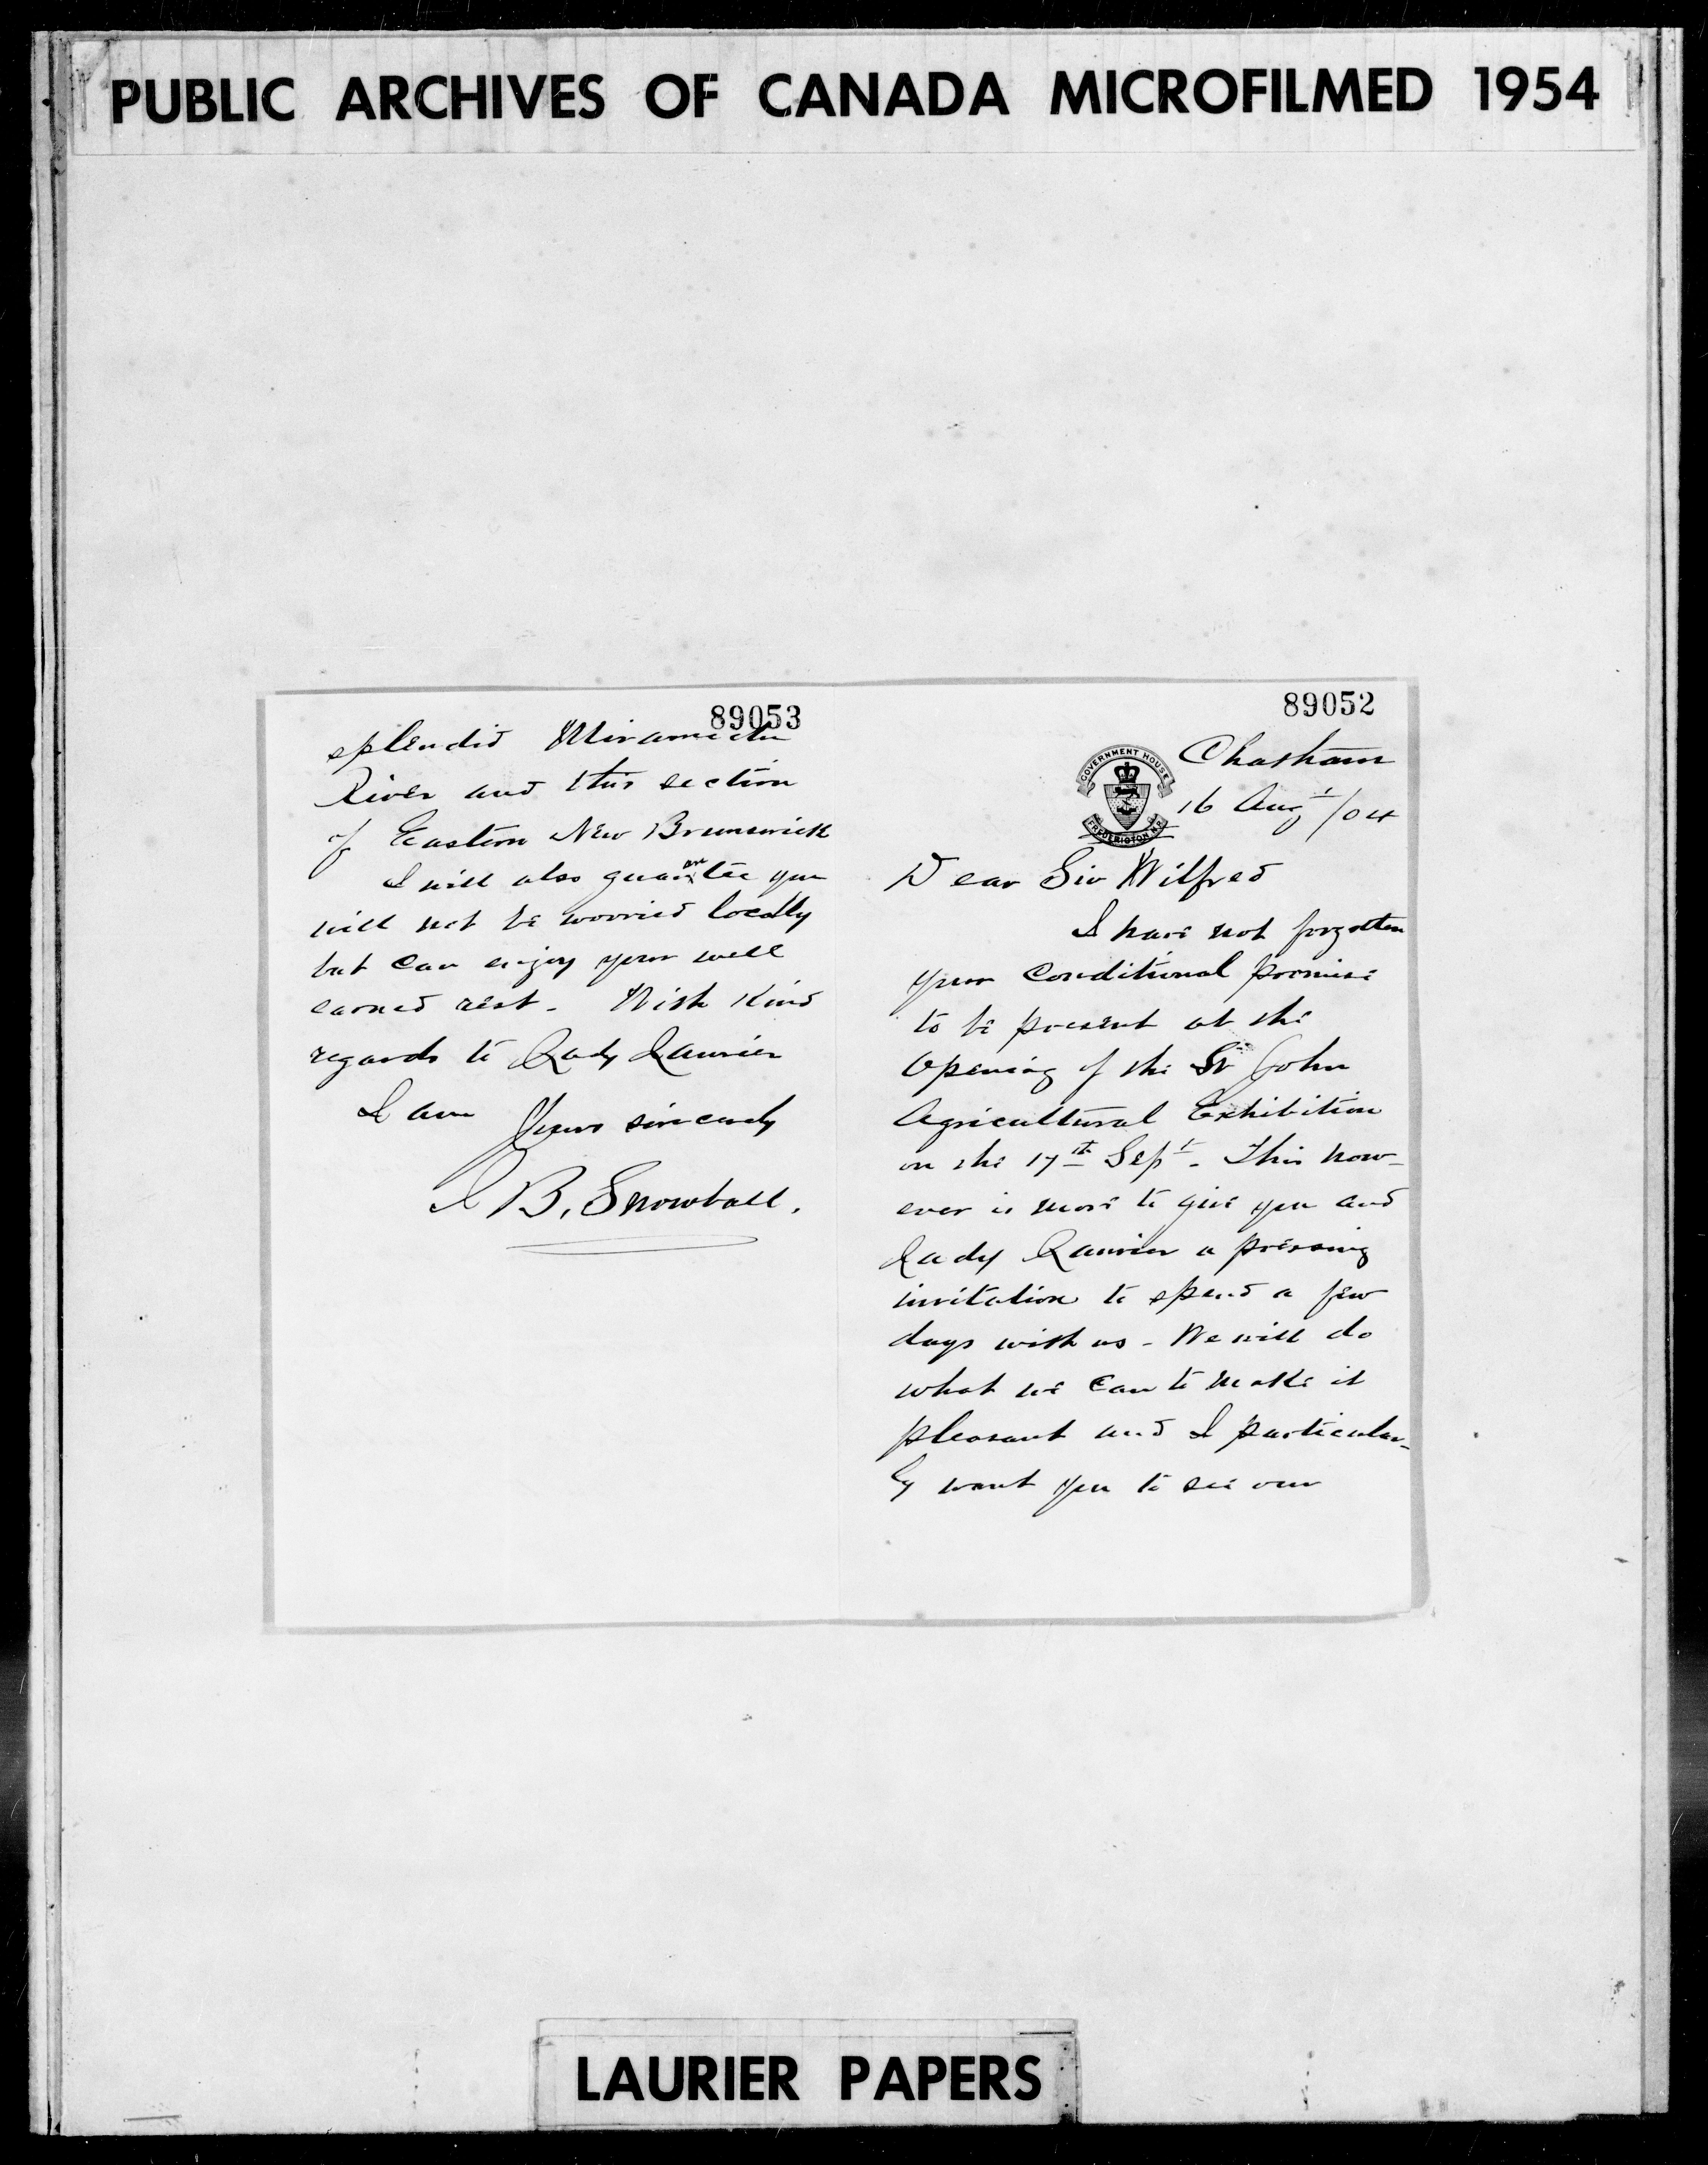 PUBLIC ARCHIVES OF CANADA MICROFILMED 1954
89052
GOVERNMENT HOUSE
FREDERICTON N.B.
Chatham
16 Augt/04
Dear Sir Wilfred
I have not forgotten
your Conditional promise
to be present at the
Opening of the St John
Agricultural Exhibition
on the 17th Sept. This how-
ever is more to give you and
Lady Laurier a pressing
invitation to spend a few
days with us - We will do
what we can to make it
pleasant and I particular-
ly want you to see our
89053
splendid Miramichi
River and this section
of Eastern New Brunswick
I will also guarantee you
will not be worried locally
but can enjoy your well
earned rest - With kind
regards to Lady Laurier
I am Yours sincerely
J B. Snowball.
LAURIER PAPERS